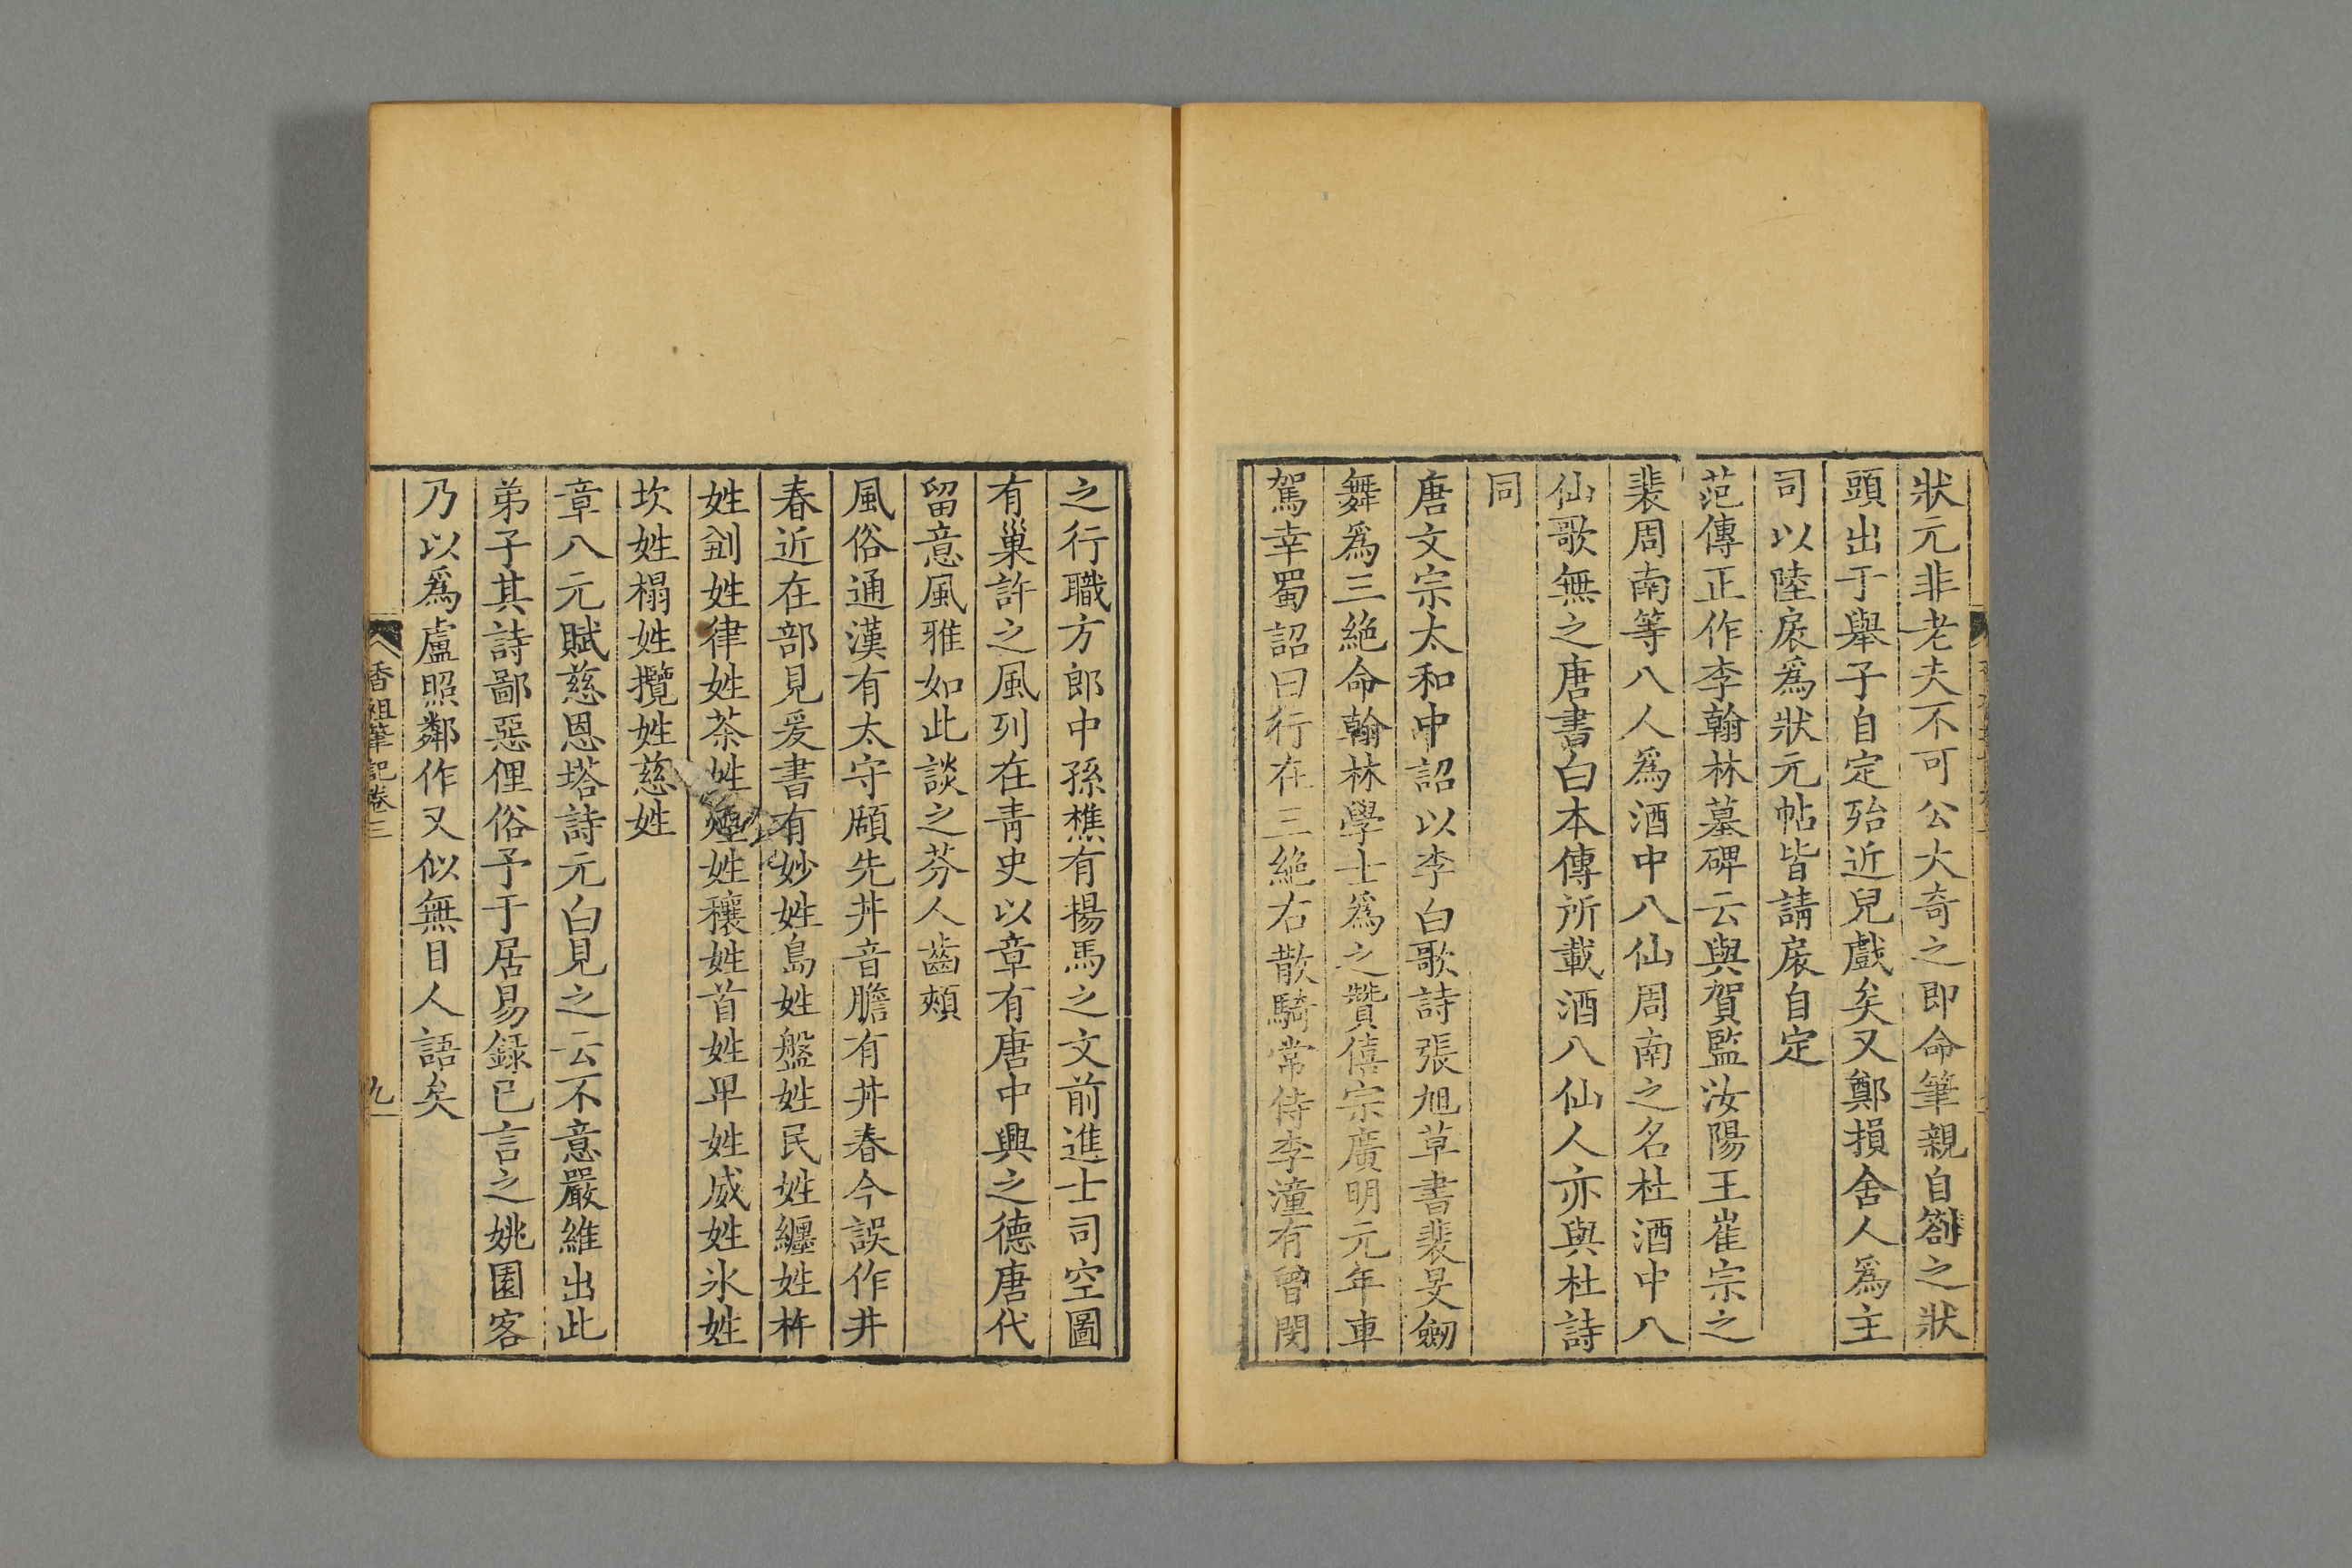 狀元非老夫不可公大奇之即命筆親自劄之狀
頭出于舉子自定殆近兒戲矣又鄭損舍人爲主
司以陸扆爲狀元帖皆請扆自定
范傳正作李翰林墓碑云與賀監汝陽王崔宗之
裴周南等八人爲酒中八仙周南之名杜酒中八
仙歌無之唐書白本傳所載酒八仙人亦與杜詩
同
唐文宗太和中詔以李白歌詩張旭草書裴旻劒
舞爲三絶命翰林學士爲之贊僖宗廣明元年車
駕幸蜀詔曰行在三絶右散騎常侍李潼有曾閔
之行職方郎中孫樵有揚馬之文前進士司空圖
有巢許之風列在青史以章有唐中興之德唐代
留意風雅如此談之芬人齒頰
風俗通漢有太守顧先丼音膽有丼春今誤作井
春近在部見爰書有妙姓島姓盤姓民姓纏姓杵
姓剆姓律姓茶姓煙姓穰姓首姓早姓威姓氷姓
坎姓榻姓攬姓慈姓
章八元賦慈恩塔詩元白見之云不意嚴維出此
弟子其詩鄙惡俚俗予于居易錄已言之姚園客
乃以爲盧照鄰作又似無目人語矣
香祖筆記卷三
九